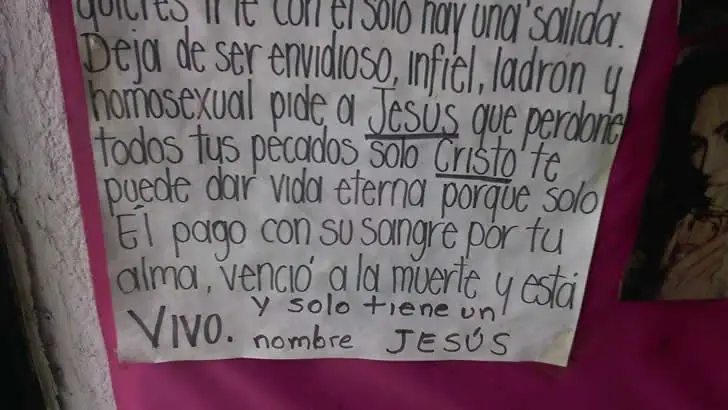 quieres irte con el solo hay una salida.
Deja de ser envidioso, infiel, ladrón y
homosexual pide a Jesús que perdone
todos tus pecados solo Cristo te
puede dar vida eterna porque solo
Él pago con su sangre por tu
alma, venció a la muerte y está
VIVO. y solo tiene un
nombre JESÚS